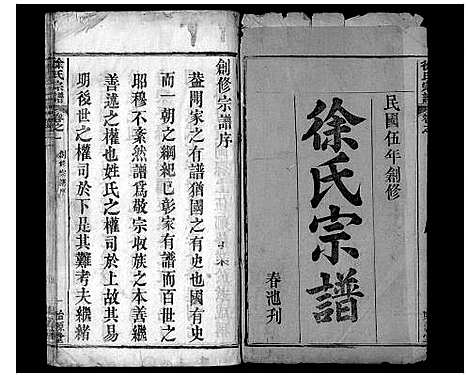 民國伍年創修
徐氏宗譜
春池刋
創修宗譜序
蓋聞家之有譜猶國之有史也國有史
而一朝之綱紀已彰家有譜而百世之
昭穆不紊然譜爲敬宗收族之本善繼
善述之權也姓氏之權司於上故其易
明後世之權司於下是其難考夫繼緒
徐氏宗譜
卷之一
創修宗譜序